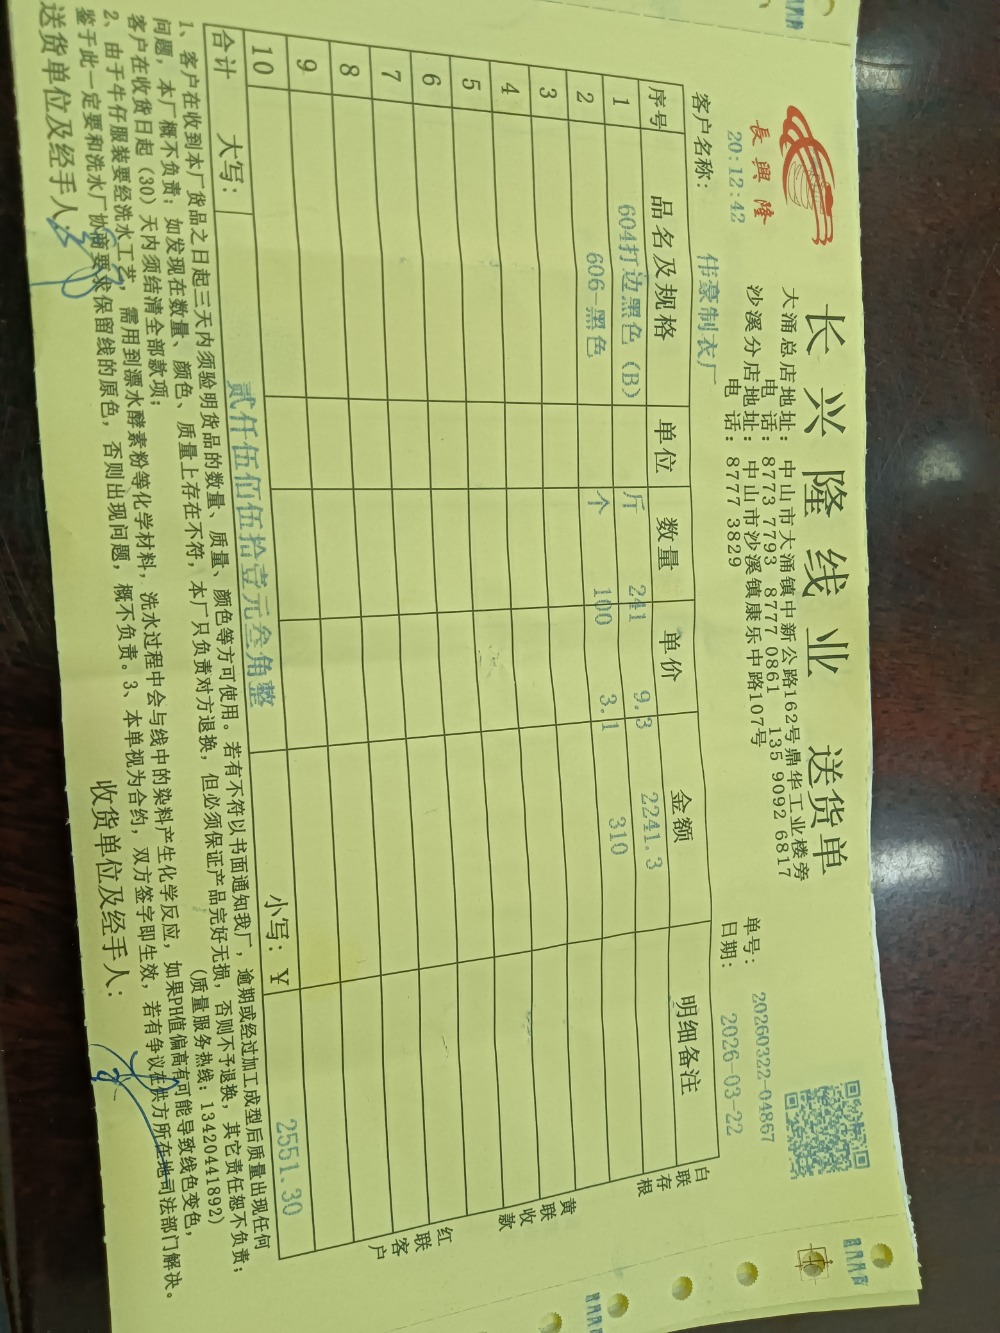 長興隆
20:12:42
长兴隆线业 送货单
大涌总店地址: 中山市大涌镇中新公路162号鼎华工业楼旁
电 话: 8773 7793 8777 0861 135 9092 6817
沙溪分店地址: 中山市沙溪镇康乐中路107号
电 话: 8777 3829
单号: 20260322-04867
日期: 2026-03-22
客户名称: 伟豪制衣厂
序号 品名及规格 单位 数量 单价 金额 明细备注
1 604打边黑色(B) 斤 241 9.3 2241.3
2 606-黑色 个 100 3.1 310
3
4
5
6
7
8
9
10
合计 大写: 贰仟伍佰伍拾壹元叁角整 小写: ¥ 2551.30
白联存根
黄联收款
红联客户
1、客户在收到本厂货品之日起三天内须验明货品的数量、质量、颜色等方可使用。若有不符以书面通知我厂,逾期或经过加工成型后质量出现任何
问题,本厂概不负责;如发现在数量、颜色、质量上存在不符,本厂只负责对方退换,但必须保证产品完好无损,否则不予退换,其它责任恕不负责;
客户在收货日起(30)天内须结清全部款项; (质量服务热线: 13420441892)
2、由于牛仔服装要经洗水工艺,需用到漂水酵素粉等化学材料,洗水过程中会与线中的染料产生化学反应,如果PH值偏高有可能导致线色变色,
鉴于此一定要和洗水厂协商要求保留线的原色,否则出现问题,概不负责。3、本单视为合约,双方签字即生效,若有争议在供方所在地司法部门解决。
送货单位及经手人: 收货单位及经手人: